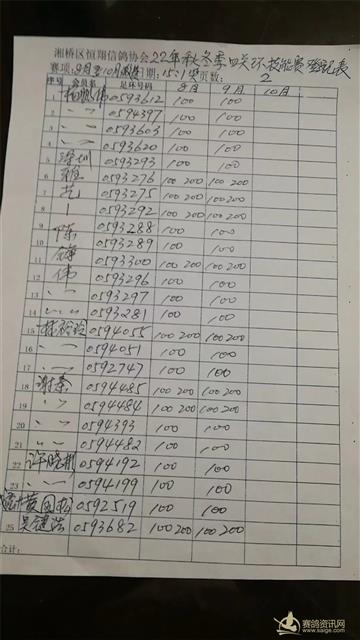 湘桥区恒翔信鸽协会22年秋冬季四关环技能赛登记表
赛项:8月至10月 日期:15:1 页数:2
序号 会员名 足环号码 8月 9月 10月
1 0593612 100 100
2 0594397 100 100
3 0593603 100 100
4 0593620 100 100
5 深圳 0593293 100 100
6 0593276 100 200 100 200
7 0593275 100 200 100 200
8 0593292 100 200 100 200
9 陈 0593288 100 100
10 0593289 100 100
11 0593300 100 200 100 200
12 伟 0593296 100 100
13 0593297 100 100
14 0593281 100 100
15 0594055 100 200 100 200
16 0594051 100 100
17 0592747 100 100
18 谢泰 0594485 100 200 100 200
19 0594484 100 200 100 200
20 0594393 100 100
21 0594482 100 100
22 许晓彬 0594192 100 100
23 0594199 100 100
黄国 0592519 100 100
25 吴健浩 0593682 100 200 100 200
合计:
赛鸽资讯网
www.saige.com